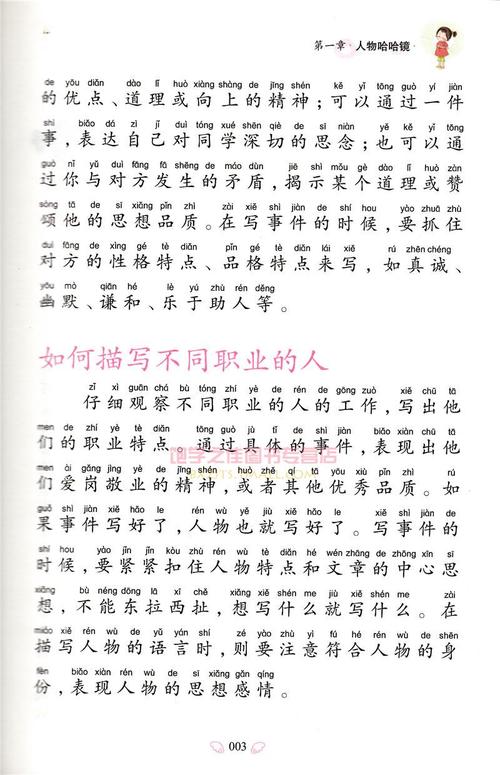 第一章 人物哈哈镜
de yōu diǎn dào lǐ huò xiàng shàng de jīng shén kě yǐ tōng guò yí jiàn
的优点、道理或向上的精神；可以通过一件
shì biǎo dá zì jǐ duì tóng xué shēn qiè de sī niàn yě kě yǐ tōng
事，表达自己对同学深切的思念；也可以通
guò nǐ yǔ duì fāng fā shēng de máo dùn jiē shì mǒu gè dào lǐ huò zàn
过你与对方发生的矛盾，揭示某个道理或赞
sòng tā de sī xiǎng pǐn zhì zài xiě shì jiàn de shí hou yào zhuā zhù
颂他的思想品质。在写事件的时候，要抓住
duì fāng de xìng gé tè diǎn pǐn gé tè diǎn lái xiě rú zhēn chéng
对方的性格特点、品格特点来写，如真诚、
yōu mò qiān hé lè yú zhù rén děng
幽默、谦和、乐于助人等。
如何描写不同职业的人
zǐ xì guān chá bù tóng zhí yè de rén de gōng zuò xiě chū tā
仔细观察不同职业的人的工作，写出他
men de zhí yè tè diǎn tōng guò jù tǐ de shì jiàn biǎo xiàn chū tā
们的职业特点。通过具体的事件，表现出他
men ài gǎng jìng yè de jīng shén huò zhě qí tā yōu xiù pǐn zhì rú
们爱岗敬业的精神，或者其他优秀品质。如
guǒ shì jiàn xiě hǎo le rén wù yě jiù xiě hǎo le xiě shì jiàn de
果事件写好了，人物也就写好了。写事件的
shí hou yào jǐn jǐn kòu zhù rén wù tè diǎn hé wén zhāng de zhōng xīn sī
时候，要紧紧扣住人物特点和文章的中心思
xiǎng bù néng dōng lā xī chě xiǎng xiě shén me jiù xiě shén me zài
想，不能东拉西扯，想写什么就写什么。在
miáo xiě rén wù de yǔ yán shí zé yào zhù yì fú hé rén wù de shēn
描写人物的语言时，则要注意符合人物的身
fèn biǎo xiàn rén wù de sī xiǎng gǎn qíng
份，表现人物的思想感情。
003